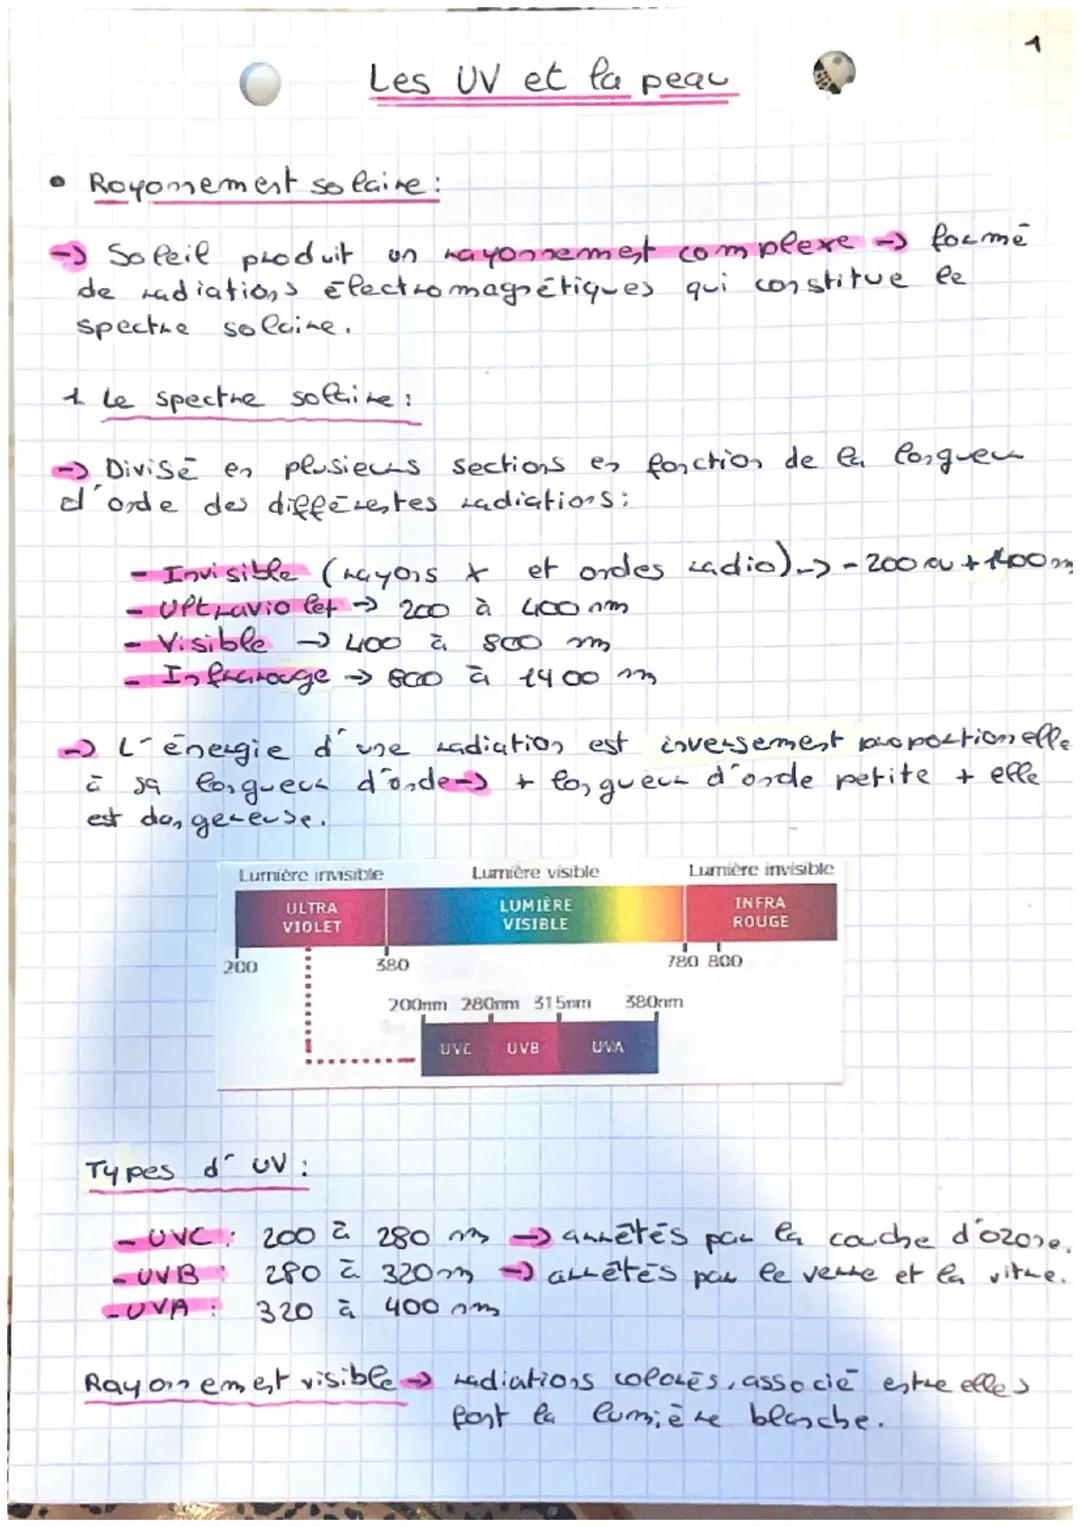 1
Les UV et la peau
• Rayonnement solaire :
→ Soleil produit un rayonnement complexe → formé
de radiations électromagnétiques qui constitue le
spectre solaire.
1 Le spectre solaire :
→ Divisé en plusieurs sections en fonction de la longueur
d'onde des différentes radiations :
- Invisible (rayons X et ondes radio) → - 200 ou + 1400 nm
- Ultraviolet → 200 à 400 nm
- Visible → 400 à 800 nm
- Infrarouge → 800 à 1400 nm
→ L'énergie d'une radiation est inversement proportionelle
à sa longueur d'onde → + longueur d'onde petite + elle
est dangereuse.
Lumière invisible Lumière visible Lumière invisible
ULTRA VIOLET LUMIÈRE VISIBLE INFRA ROUGE
200 380 780 800
200nm 280nm 315nm 380nm
UVC UVB UVA
Types d'UV :
- UVC : 200 à 280 nm → arrêtés par la couche d'ozone.
- UVB : 280 à 320 nm → arrêtés par le verre et la vitre.
- UVA : 320 à 400 nm
Rayonnement visible → radiations colorés, associé entre elles
font la lumière blanche.